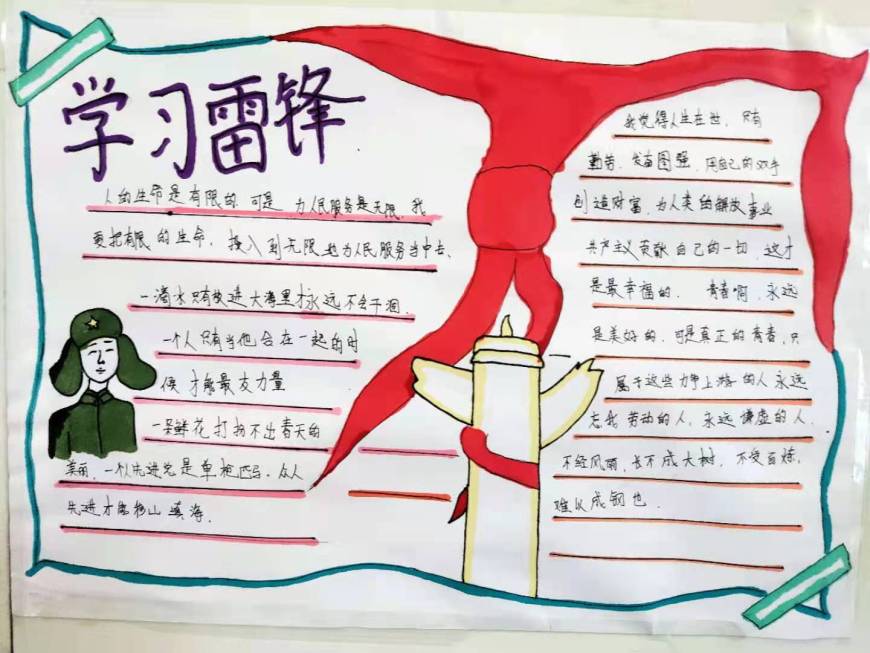 学习雷锋
人的生命是有限的,可是 为人民服务是无限,我
要把有限的生命,投入到无限的为人民服务当中去、
一滴水只有放进大海里才永远不会干涸.
一个人只有当他合在一起的时
候 才能最友力量
一朵鲜花打扮不出春天的
美丽,一个人先进总是单枪匹马,众人
先进才能移山填海.
我觉得人生在世,只有
勤劳,发奋图强,用自己的双手
创造财富,为人类的解放事业
共产主义贡献自己的一切,这才
是最幸福的. 青春啊,永远
是美好的,可是真正的青春,只
属于这些力争上游的人永远
忘我劳动的人,永远谦虚的人.
不经风雨,长不成大树,不受百炼,
难以成钢也.